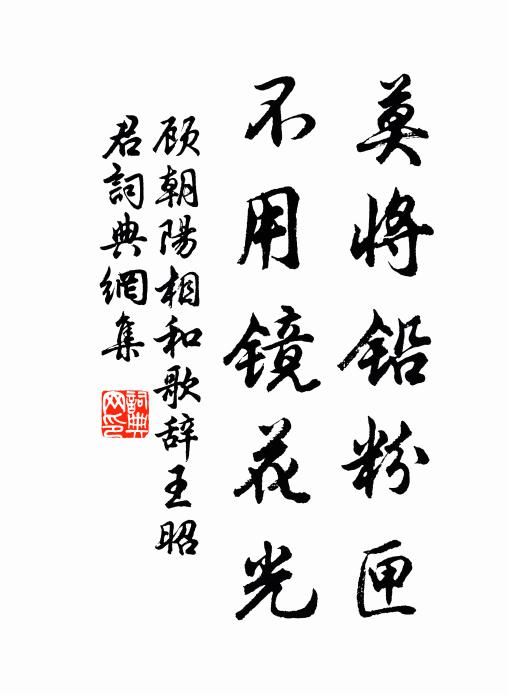 莫将铅粉匣
不用镜花光
顾朝陽相和歌辞王昭
君詞典網集
詞典网印